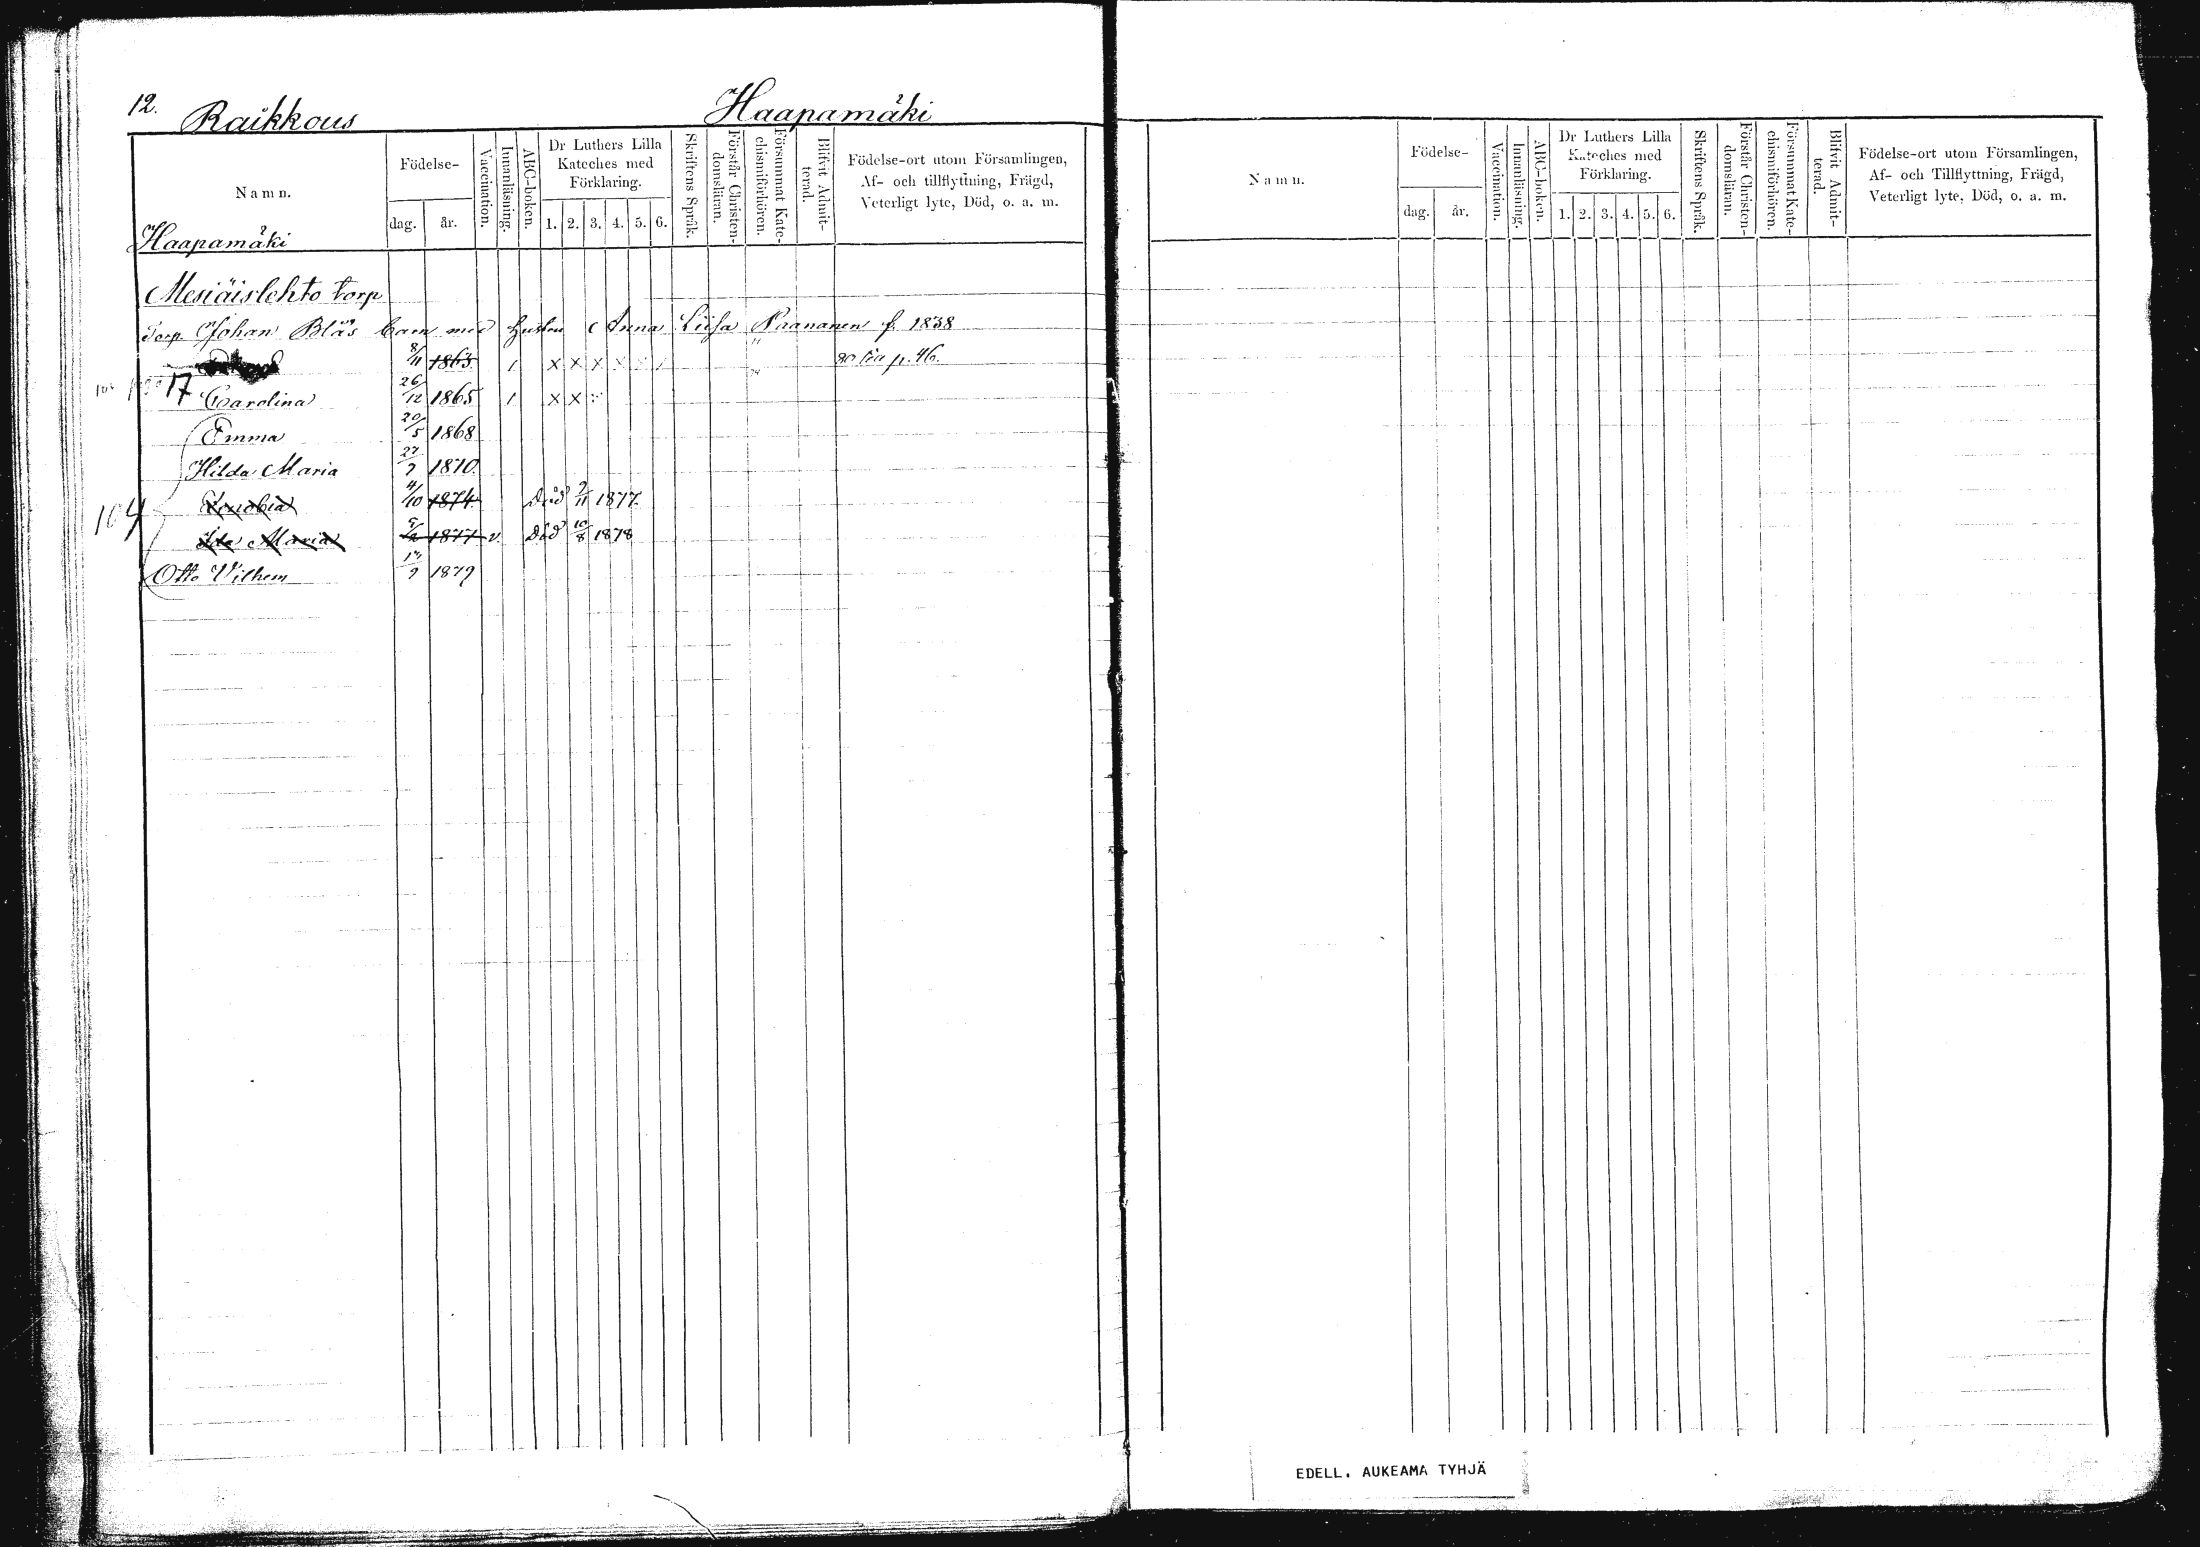 12. Raikkous Haapamäki
Namn.
Födelse-
dag. år.
Vaccination.
Innanläsning.
ABC-boken.
Dr Luthers Lilla
Kateches med
Förklaring.
1. 2. 3. 4. 5. 6.
Skriftens Språk.
Förstår Christen-
domsläran.
Försummat Kate-
chismiförhören.
Blifvit Admit-
terad.
Födelse-ort utom Församlingen,
Af- och tillflyttning, Frägd,
Veterligt lyte, Död, o. a. m.
Haapamäki
Mesiäislehto torp
Torp. Johan Blås barn med hustru Anna Liisa Paananen f. 1838
8/11 1863 1 x x x x p. 46.
17 Carolina 26/12 1865 1 x x
Emma 20/5 1868
Hilda Maria 27/7 1870.
4/10 1874. Död 7/11 1877.
104
Ida Maria 1877 v. Död 10/8 1878
Otto Vilhem 1879
Namn.
Födelse-
dag. år.
Vaccination.
Innanläsning.
ABC-boken.
Dr Luthers Lilla
Kateches med
Förklaring.
1. 2. 3. 4. 5. 6.
Skriftens Språk.
Förstår Christen-
domsläran.
Försummat Kate-
chismiförhören.
Blifvit Admit-
terad.
Födelse-ort utom Församlingen,
Af- och Tillflyttning, Frägd,
Veterligt lyte, Död, o. a. m.
EDELL. AUKEAMA TYHJÄ